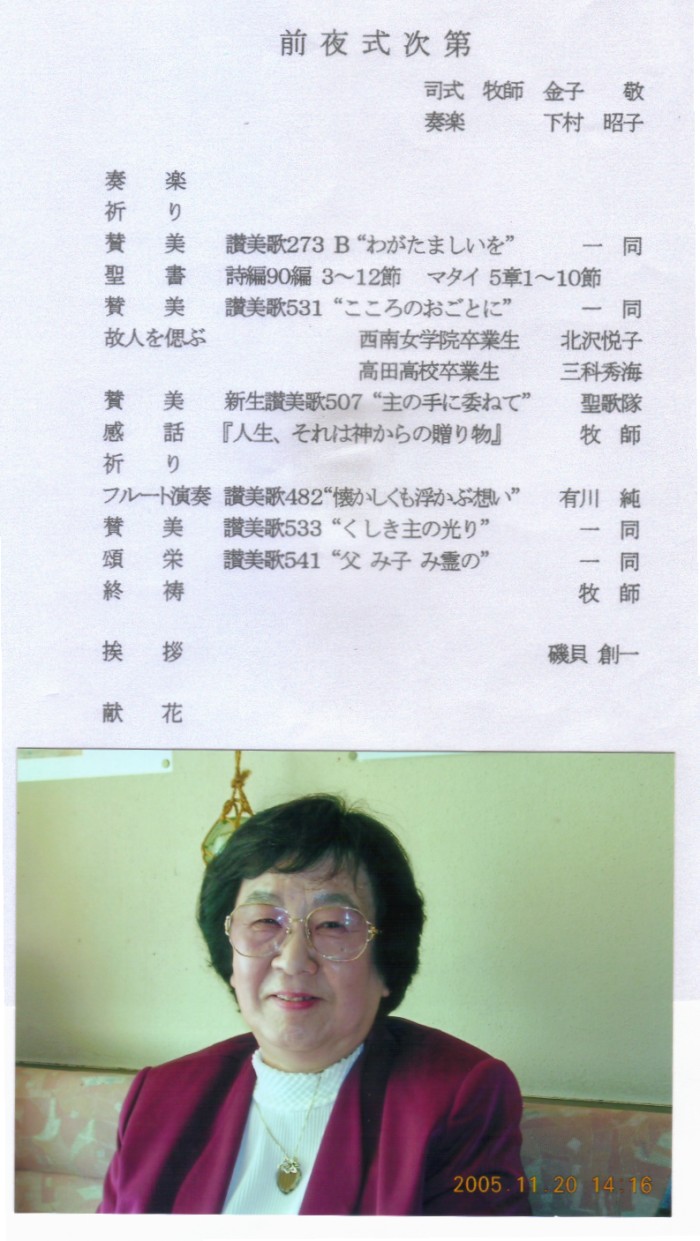 前夜式次第
司式 牧師 金子 敬
奏楽 下村 昭子
奏 楽
祈 り
賛 美 讃美歌273 B “わがたましいを” 一 同
聖 書 詩編90編 3～12節 マタイ 5章1～10節
賛 美 讃美歌531 “こころのおごとに” 一 同
故人を偲ぶ 西南女学院卒業生 北沢悦子
高田高校卒業生 三科秀海
賛 美 新生讃美歌507 “主の手に委ねて” 聖歌隊
感 話 『人生、それは神からの贈り物』 牧 師
祈 り
フルート演奏 讃美歌482“懐かしくも浮かぶ想い” 有川 純
賛 美 讃美歌533 “くしき主の光り” 一 同
頌 栄 讃美歌541 “父 み子 み霊の” 一 同
終 祷 牧 師
挨 拶 磯貝 創一
献 花
2005 11 20 14:16